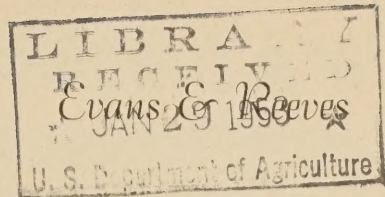 LIBRARY
RECEIVED
Evans & Reeves
★ JAN 29 ★
U. S. Department of Agriculture